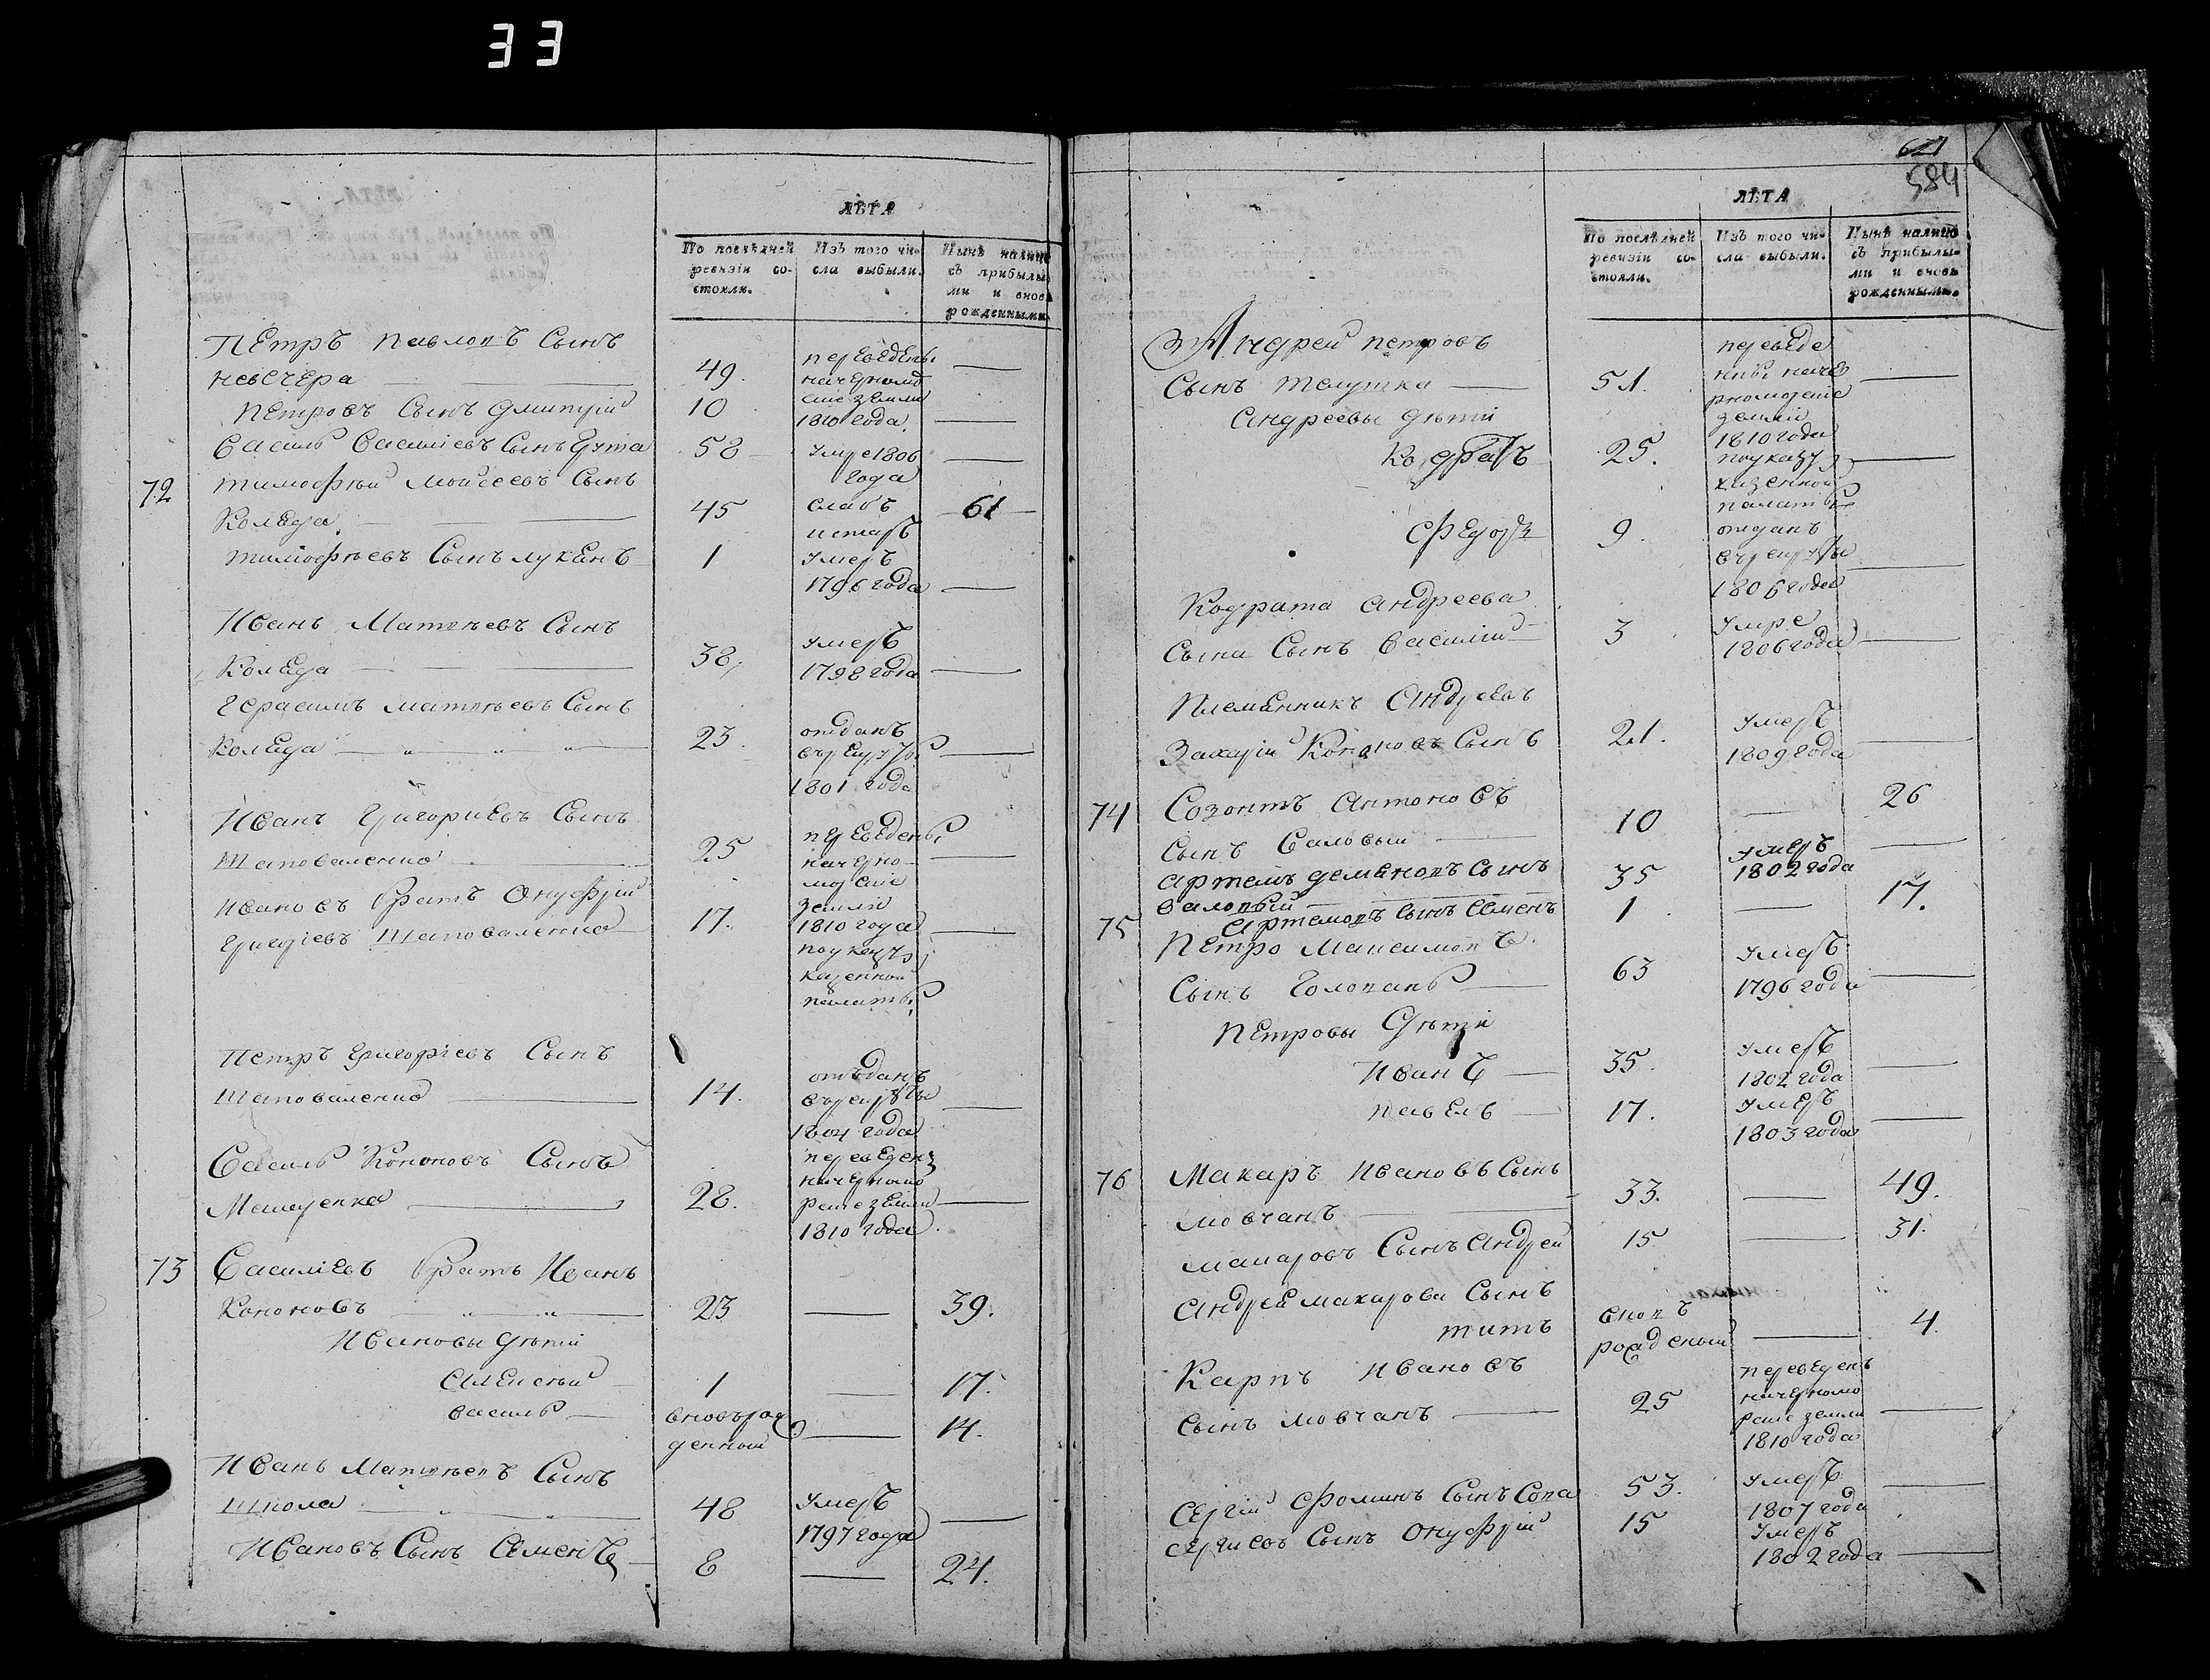 33
ЛѢТА
По послѣдней ревизіи состояли.
Изъ того числа выбыли.
Нынѣ налицо съ прибылыми и вновь рожденными.
Петръ Павловъ Сынъ
Невечера 49. переведены
на черномо
Петровъ Сынъ Дмитрій 10 рские земли
1810 года
Василь Василиевъ Сынъ 58 Умре 1806
года
72 Тимофѣй Мойсеевъ Сынъ
Коляда 45 слабъ 61
и старъ
Тимофѣевъ Сынъ Лукянъ 1 Умеръ
1796 года
Иванъ Матвѣевъ Сынъ
Коляда 38 Умеръ
1798 года
Герасимъ Матвѣевъ Сынъ
Коляда 23. отданъ
въ рекруты
1801 года
Иванъ Григориевъ Сынъ
Шаповаленко 25 переведены
на черно
морские
Ивановъ братъ Онуфрій земли
Григоріевъ Шаповаленко 17. 1810 года
по указу
казенной
палаты
Петръ Григоріевъ Сынъ
Шаповаленко 14. отъданъ
въ рекруты
1804 года
Василь Кононовъ Сынъ переведенъ
на черномо
28. рские земли
1810 года
73 Василіевъ братъ Иванъ
Кононовъ 23 39.
Ивановы Дѣтій
Алексѣй 1 17.
Василь вновърож 14.
денный
Иванъ Матвѣевъ Сынъ
Шпола 48 Умеръ
1797 года
Ивановъ Сынъ Семенъ 8 24.
621
584
ЛѢТА
По послѣдней ревизіи состояли.
Изъ того числа выбыли.
Нынѣ налицо съ прибылыми и вновь рожденными.
Андрей Петровъ переведе
Сынъ Телушка 51. ны наче
рноморские
Андреевы Дѣтій земли
1810 года
Кодратъ 25. по указу
казенной
палаты
Федоръ 9. отданъ
въ рекруты
1806 года
Кодрата Андреева
Сына Сынъ Василій 3 Умре
1806 года
Племянникъ Андреевъ
Захарій Кононовъ Сынъ 21. Умеръ
1809 года
74 Созонтъ Антоновъ 26
Сынъ Саловый 10
Артемъ Демяновъ Сынъ 35 Умеръ
1802 года
Саловый
Артемовъ Сынъ Семенъ 1 17.
75 Петро Максимовъ
Сынъ Голопапъ 63 Умеръ
1796 года
Петровы Дѣтій
Иванъ 35. Умеръ
1802 года
Павелъ 17. Умеръ
1803 года
76 Макаръ Ивановъ Сынъ
Мовчанъ 33. 49.
Макаровъ Сынъ Андрей 15 31.
Андрей Макарова Сынъ
Титъ вновъ
рожденый 4
Карпъ Ивановъ переведенъ
на черномо
Сынъ Мовчанъ 25 рские земли
1810 года
Сергій Фоминъ Сынъ Сопа 53. Умеръ
1807 года
Сергиевъ Сынъ Онуфрій 15 Умеръ
1802 года